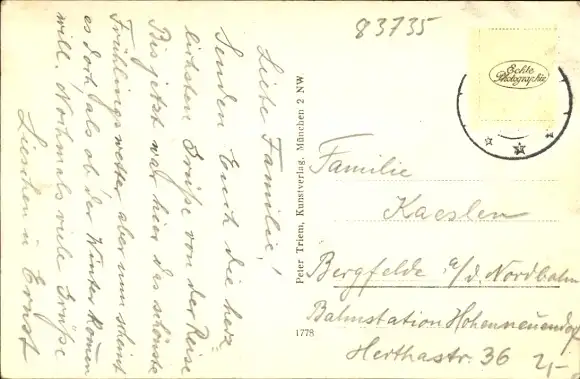 83735
Echte
Photographie
Liebe Familie!
Senden Euch die herz-
lichsten Grüße von der Reise
Bis jetzt war hier das schönste
Frühlingswetter aber nun scheint
es doch als ob der Winter kommen
will. Nochmals viele Grüße
Lieschen u Ernst
Peter Triem, Kunstverlag, München 2 NW
1778
Familie
Kaeslen
Bergfelde a/d. Nordbahn
Bahnstation Hohenneuendorf
Herthastr. 36
2,-